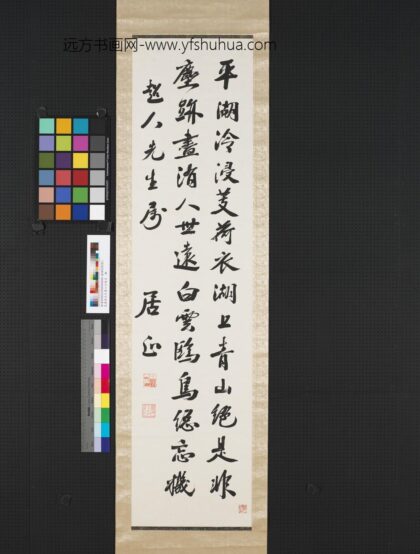 远方书画网-www.yfshuhua.com
平湖冷浸芰荷衣湖上青山絕是非
塵跡盡消人世遠白雲鷗鳥總忘機
越人先生屬
居正